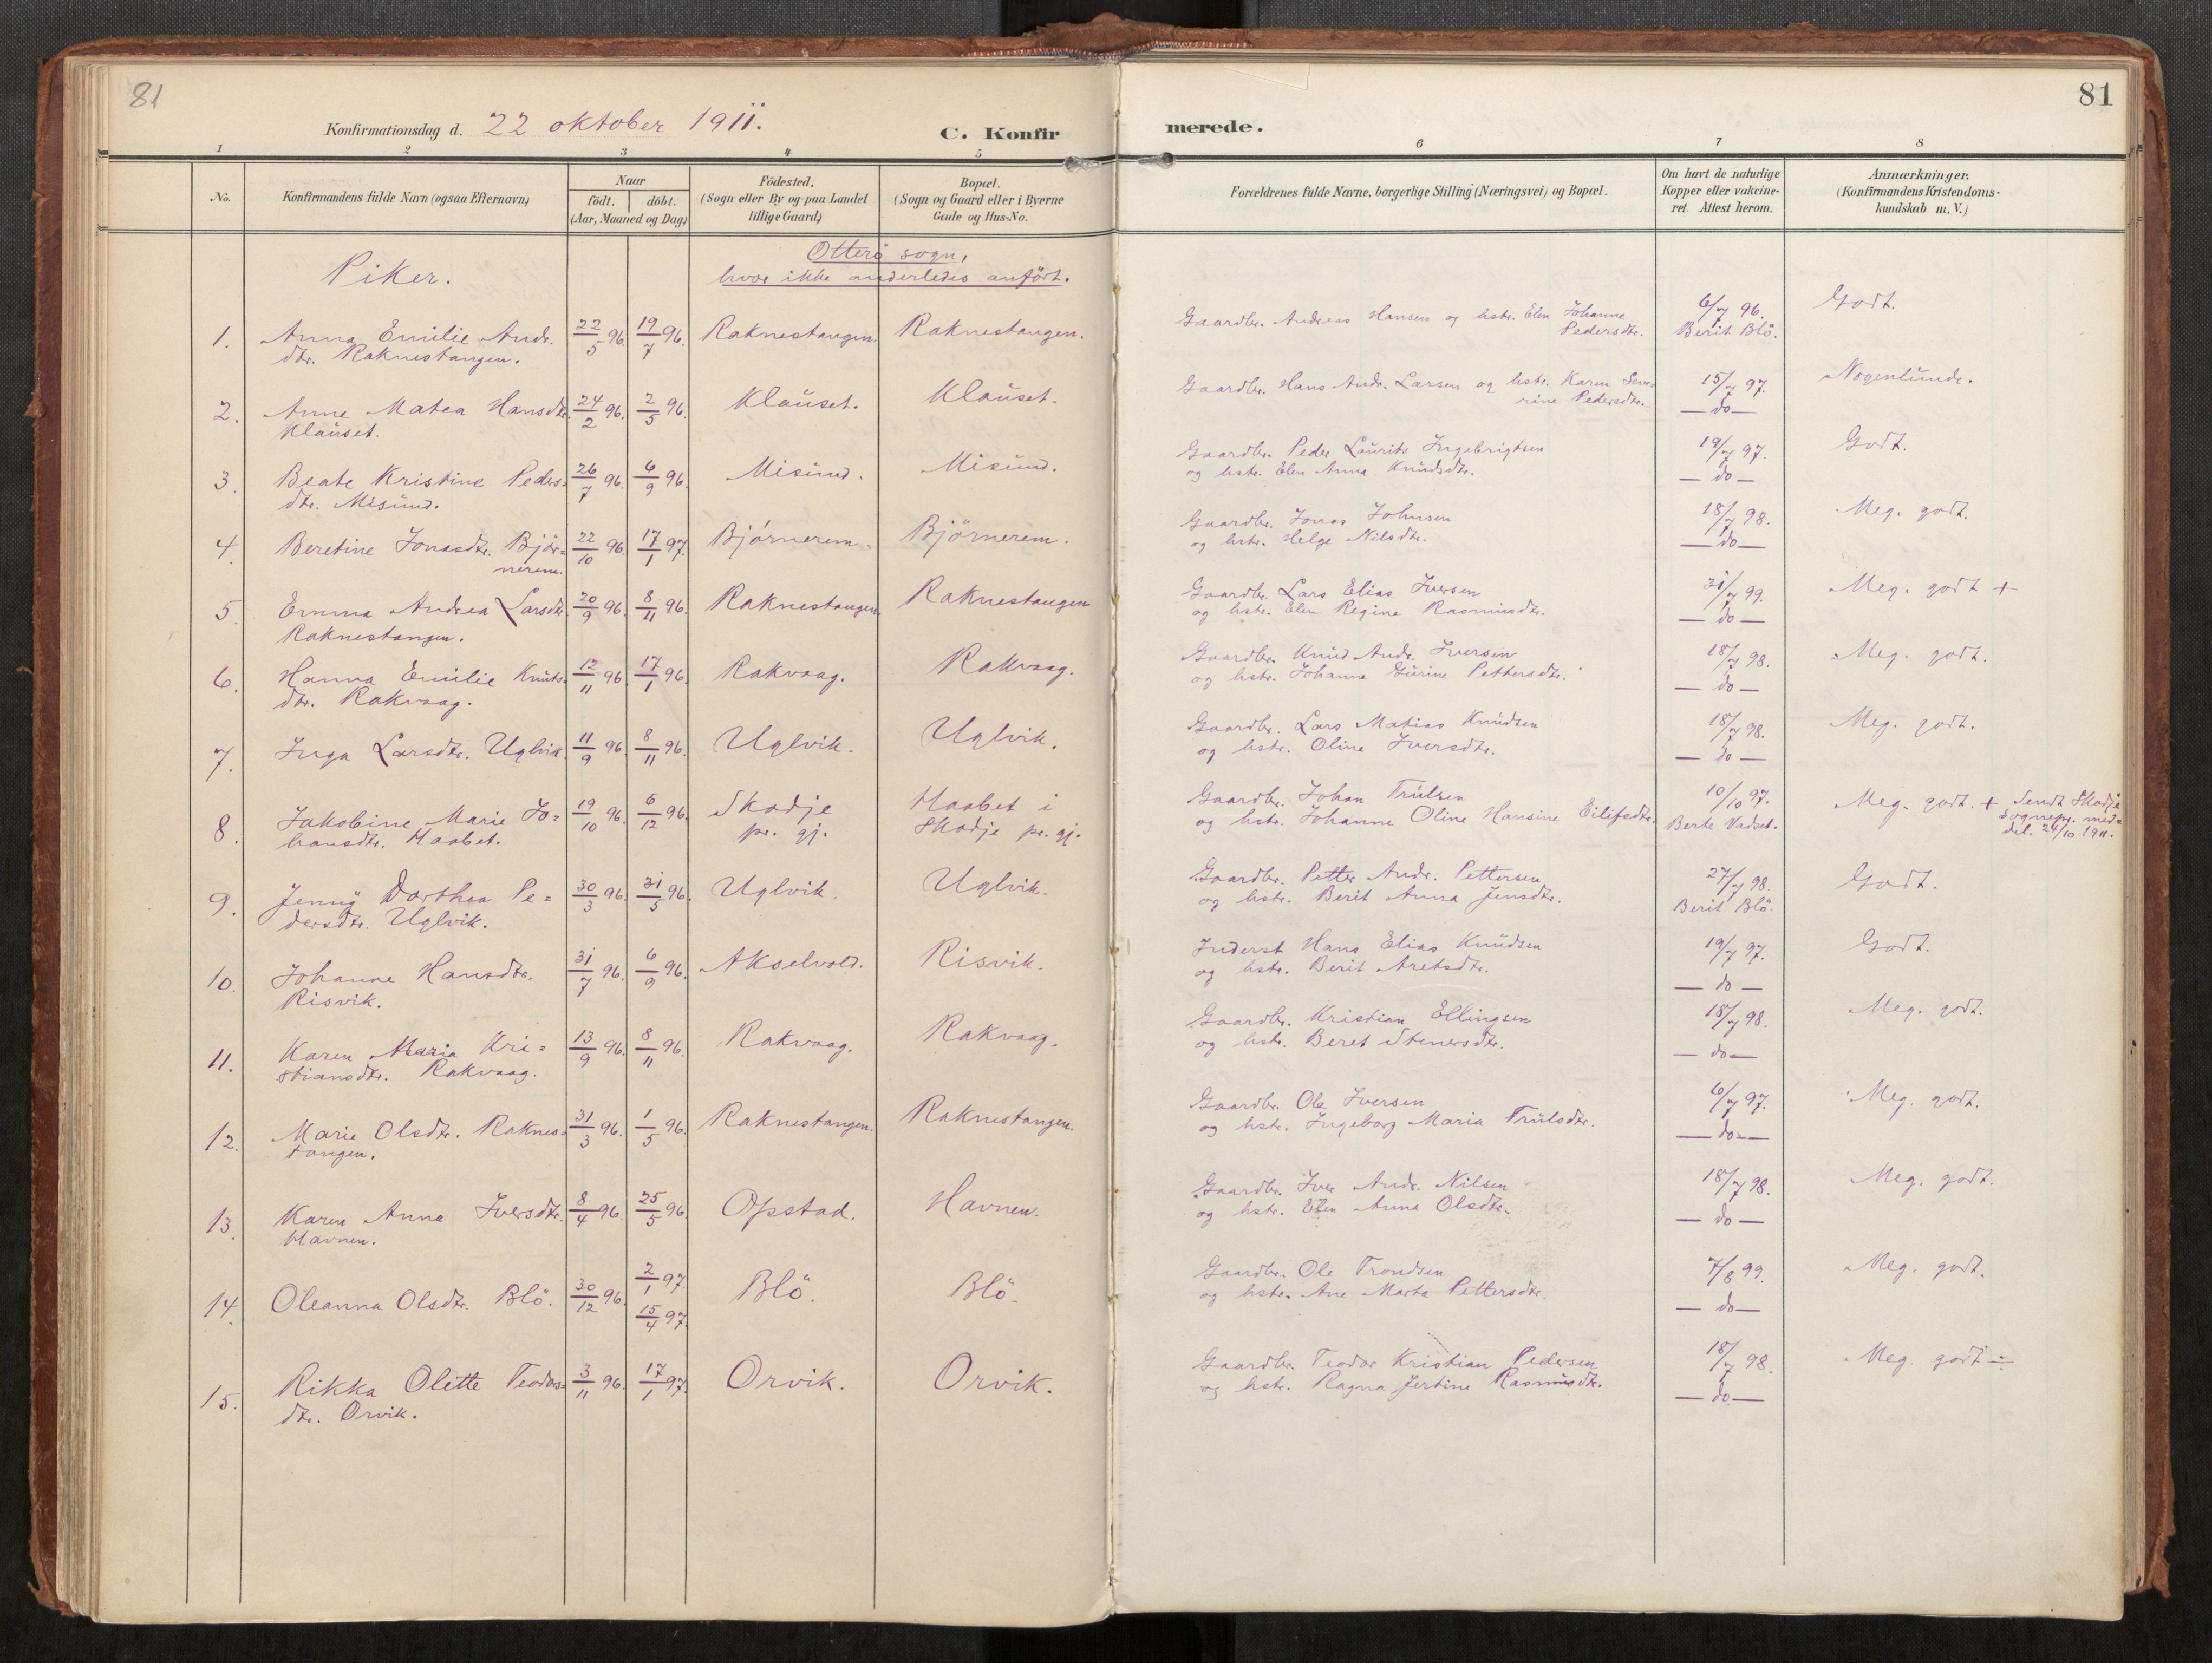 81
81
Konfirmationsdag d. 22 oktober 1911.
C. Konfir
merede.
1 2 3 4 5 6 7 8
No.
Konfirmandens fulde Navn (ogsaa Efternavn)
Naar
födt. döbt.
(Aar, Maaned og Dag)
Födested.
(Sogn eller By og paa Landet
tillige Gaard)
Bopæl.
(Sogn og Gaard eller i Byerne
Gade og Hus-No.
Forældrenes fulde Navne, borgerlige Stilling (Næringsvei) og Bopæl.
Om havt de naturlige
Kopper eller vakcine-
ret. Attest herom.
Anmærkninger.
(Konfirmandens Kristendoms-
kundskab m. V.)
Piker.
Otterö sogn,
hvor ikke anderledes anfört.
1. Anna Emilie Andr. 22/5 96. 19/7 96. Raknestangen. Raknestangen. Gaardbr. Andreas Hansen og hstr. Elen Johanne 6/7 96. Godt.
dtr. Raknestangen. Pedersdtr. Berit Blö.
2. Anne Matea Hansdtr. 24/2 96. 2/5 96. Klauset. Klauset. Gaardbr. Hans Andr. Larsen og hstr. Karen Seve- 15/7 97. Nogenlunde.
Klauset. rine Pedersdtr. — do —
3. Beate Kristine Peders= 26/7 96. 6/9 96. Misund. Misund. Gaardbr. Peder Laurits Ingebrigtsen 19/7 97. Godt.
dtr. Misund. og hstr. Elen Anna Knudsdtr. — do —
4. Beretine Jonasdtr. Björ= 22/10 96. 17/1 97. Björnerem. Björnerem. Gaardbr. Jonas Johnsen 18/7 98. Meg. godt.
nerem. og hstr. Helge Nilsdtr. — do —
5. Emma Andrea Larsdtr. 20/9 96. 8/11 96. Raknestangen. Raknestangen Gaardbr. Lars Elias Iversen 31/7 99. Meg. godt +
Raknestangen. og hstr. Elen Regine Rasmusdtr. — do —
6. Hanna Emilie Knuts= 12/11 96. 17/1 96. Rakvaag. Rakvaag. Gaardbr. Knud Andr. Iversen 18/7 98. Meg. godt.
dtr. Rakvaag. og hstr. Johanne Gurine Pettersdtr. — do —
7. Inga Larsdtr. Uglvik. 11/9 96. 8/11 96. Uglvik. Uglvik. Gaardbr. Lars Matias Knudsen 18/7 98. Meg. godt.
og hstr. Oline Iversdtr. — do —
8. Jakobine Marie Jo= 19/10 96. 6/12 96. Skodje Haabet i Gaardbr. Johan Trulsen 10/10 97. Meg. godt. + Sendt Skodje
hansdtr. Haabet. pr. gj. Skodje pr. gj. og hstr. Johanne Oline Hansine Eilifsdtr. Berte Vadset. sognepr. med=
del. 24/10 1911.
9. Jenny Dorthea Pe= 30/3 96. 31/5 96. Uglvik. Uglvik. Gaardbr. Petter Andr. Pettersen 27/7 98. Godt.
dersdtr. Uglvik. og hstr. Berit Anna Jensdtr. Berit Blö.
10. Johanne Hansdtr. 31/7 96. 6/9 96. Akselvold. Risvik. Inderst Hans Elias Knudsen 19/7 97. Godt.
Risvik. og hstr. Berit Aretsdtr. — do —
11. Karen Maria Kri= 13/9 96. 8/11 96. Rakvaag. Rakvaag. Gaardbr. Kristian Ellingsen 18/7 98. Meg. godt.
stiansdtr. Rakvaag. og hstr. Beret Stenersdtr. — do —
12. Marie Olsdtr. Raknes= 31/3 96. 1/5 96. Raknestangen. Raknestangen. Gaardbr. Ole Iversen 6/7 97. Meg. godt.
tangen. og hstr. Ingeborg Maria Trulsdtr. — do —
13. Karen Anna Iversdtr. 8/4 96. 25/5 96. Opstad. Havnen. Gaardbr. Iver Andr. Nilsen 18/7 98. Meg. godt.
Havnen. og hstr. Elen Anna Olsdtr. — do —
14. Oleanna Olsdtr. Blö. 30/12 96. 2/1 97. 15/4 97. Blö. Blö. Gaardbr. Ole Trondsen 7/8 99. Meg. godt.
og hstr. Ane Marta Pettersdtr. — do —
15. Rikka Olette Teodors= 3/11 96. 17/1 97. Orvik. Orvik. Gaardbr. Teodor Kristian Pedersen 18/7 98. Meg. godt ÷
dtr. Orvik. og hstr. Ragna Jertine Rasmusdtr. — do —